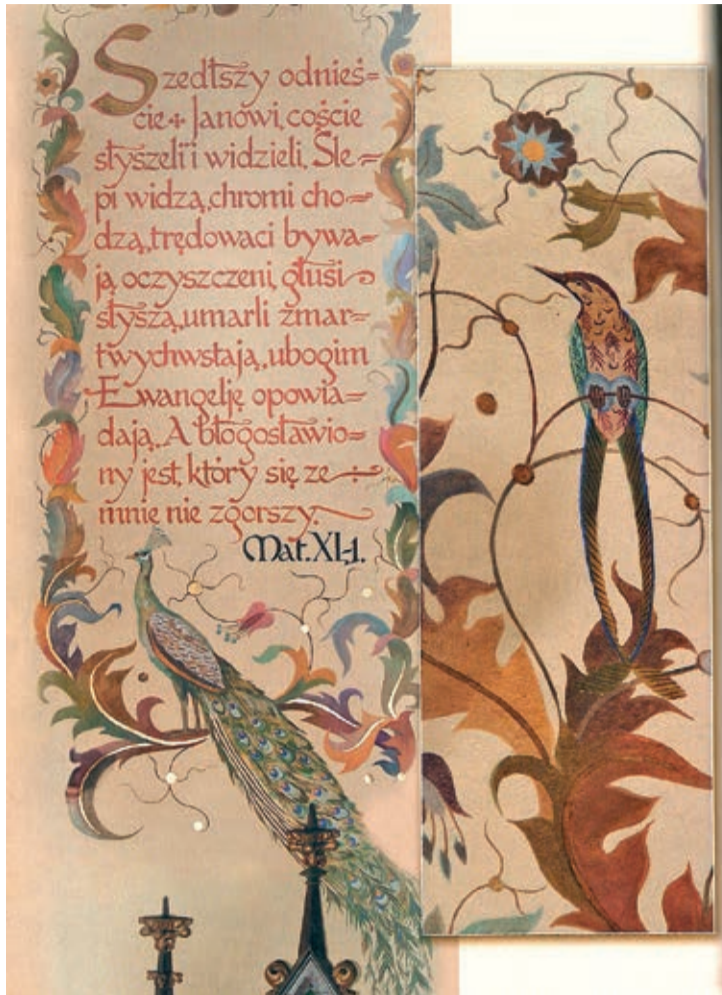 Szedłszy odnieś=
cie Janowi, coście
słyszeli i widzieli. Śle=
pi widzą, chromi cho=
dzą, trędowaci bywa=
ją oczyszczeni, głusi
słyszą, umarli zmar=
twychwstają, ubogim
Ewangelję opowia=
dają. A błogosławio=
ny jest, który się ze
mnie nie zgorszy.
Mat. XI-1.